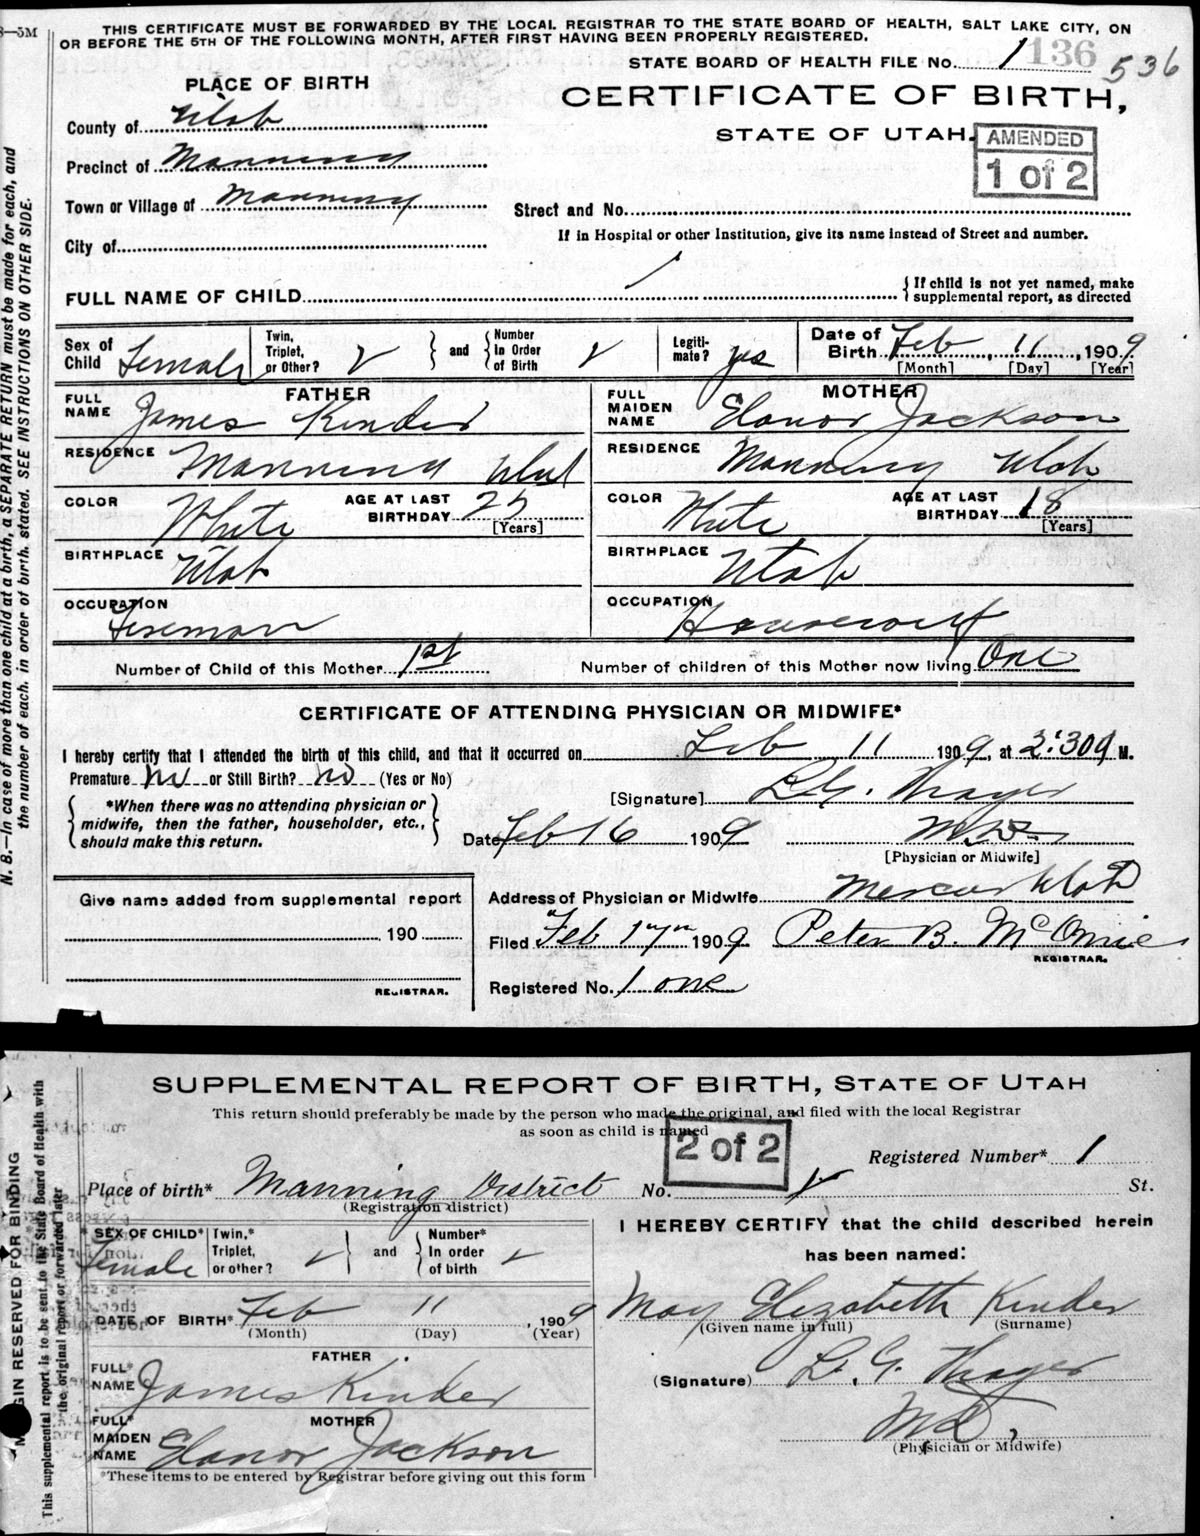 8—5M
THIS CERTIFICATE MUST BE FORWARDED BY THE LOCAL REGISTRAR TO THE STATE BOARD OF HEALTH, SALT LAKE CITY, ON
OR BEFORE THE 5TH OF THE FOLLOWING MONTH, AFTER FIRST HAVING BEEN PROPERLY REGISTERED.
STATE BOARD OF HEALTH FILE No. 1 136 536
PLACE OF BIRTH
CERTIFICATE OF BIRTH,
STATE OF UTAH.
AMENDED
1 of 2
County of Utah
Precinct of Manning
Town or Village of Manning
Street and No.
City of
If in Hospital or other Institution, give its name instead of Street and number.
FULL NAME OF CHILD
{ If child is not yet named, make
supplemental report, as directed
Sex of Child Female
Twin, Triplet, or Other? } and { Number In Order of Birth
Legiti-mate? yes
Date of Birth Feb, 11, 1909
[Month] [Day] [Year]
FATHER
FULL NAME James Kinder
MOTHER
FULL MAIDEN NAME Elanor Jackson
RESIDENCE Manning Utah
RESIDENCE Manning Utah
COLOR White
AGE AT LAST BIRTHDAY 25 [Years]
COLOR White
AGE AT LAST BIRTHDAY 18 [Years]
BIRTHPLACE Utah
BIRTHPLACE Utah
OCCUPATION Fireman
OCCUPATION Housewife
Number of Child of this Mother 1st
Number of children of this Mother now living One
CERTIFICATE OF ATTENDING PHYSICIAN OR MIDWIFE*
I hereby certify that I attended the birth of this child, and that it occurred on Feb 11 1909, at 2:30 a M.
Premature No or Still Birth? No (Yes or No)
{ *When there was no attending physician or
midwife, then the father, householder, etc.,
should make this return. }
[Signature] L. G. Thayer
Date Feb 16 1909 M.D.
[Physician or Midwife]
Address of Physician or Midwife Mercur Utah
Filed Feb 17th 1909 Peter B. McOmie
REGISTRAR.
Registered No. 1 one
Give name added from supplemental report
, 190
REGISTRAR.
N. B.—In case of more than one child at a birth, a SEPARATE RETURN must be made for each, and
the number of each, in order of birth, stated. SEE INSTRUCTIONS ON OTHER SIDE.
SUPPLEMENTAL REPORT OF BIRTH, STATE OF UTAH
This return should preferably be made by the person who made the original, and filed with the local Registrar
as soon as child is named
2 of 2
Registered Number* 1
Place of birth* Manning District No. St.
(Registration district)
SEX OF CHILD* Female
Twin,* Triplet, or other? } and { Number* In order of birth
DATE OF BIRTH* Feb 11, 1909
(Month) (Day) (Year)
FATHER
FULL* NAME James Kinder
MOTHER
FULL* MAIDEN NAME Elanor Jackson
*These items to be entered by Registrar before giving out this form
I HEREBY CERTIFY that the child described herein
has been named:
May Elizabeth Kinder
(Given name in full) (Surname)
(Signature) L. G. Thayer
MD,
(Physician or Midwife)
MARGIN RESERVED FOR BINDING
This supplemental report is to be sent to the State Board of Health with
the original report or forwarded later